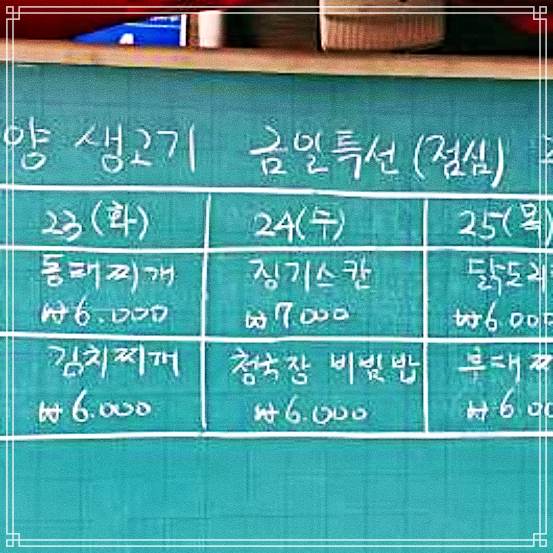 양 생고기 금일특선 (점심)
23(화) 24(수) 25(목)
동태찌개 징기스칸 닭도리
₩6.000 ₩7.000 ₩6.000
김치찌개 청국장 비빔밥 부대찌
₩6.000 ₩6.000 ₩6.00